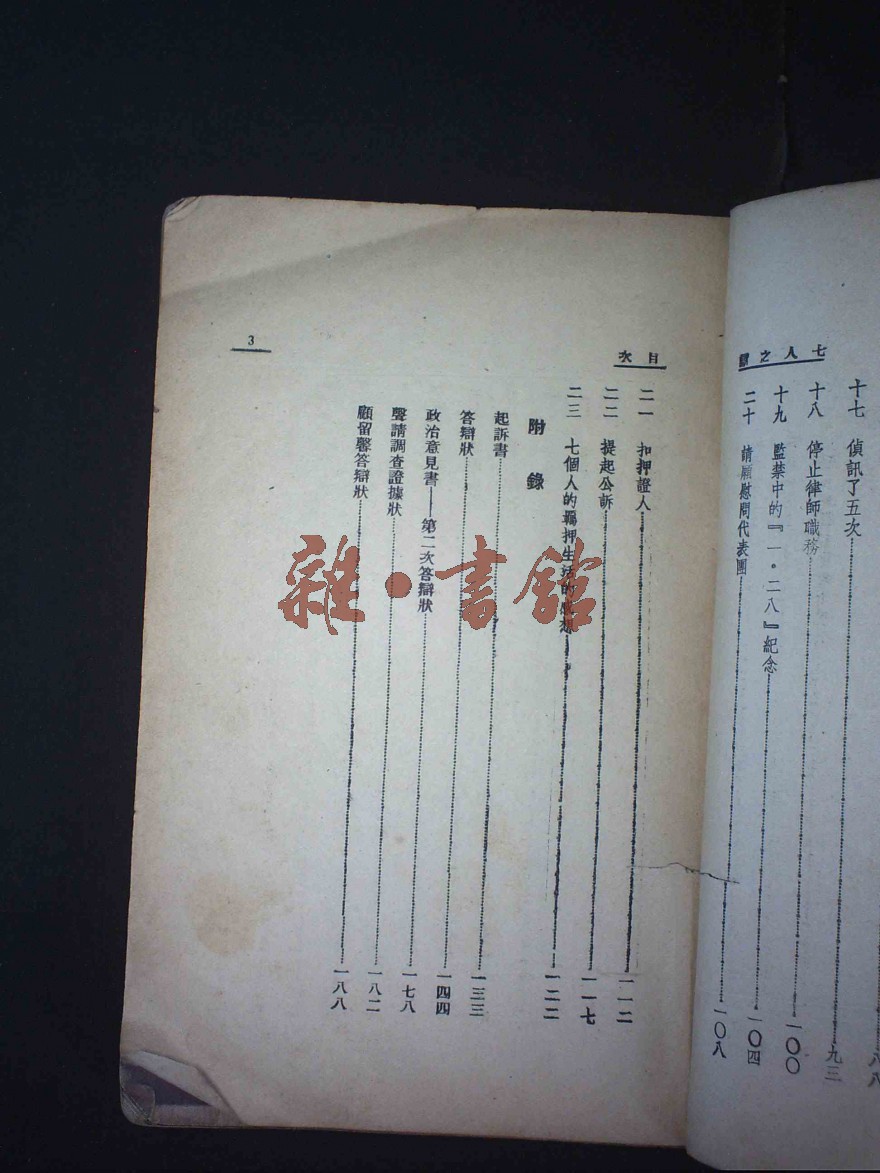 七人之獄
八八
十七 偵訊了五次……九三
十八 停止律師職務……一〇〇
十九 監禁中的『一・二八』紀念……一〇四
二十 請願慰問代表團……一〇八
目次
二一 扣押證人……一一二
二二 提起公訴……一一七
二三 七個人的羈押生活的感想……一二二
附錄
起訴書……一三三
答辯狀……一四四
政治意見書——第二次答辯狀……一七八
聲請調查證據狀……一八二
顧留馨答辯狀……一八八
3
雜・書館